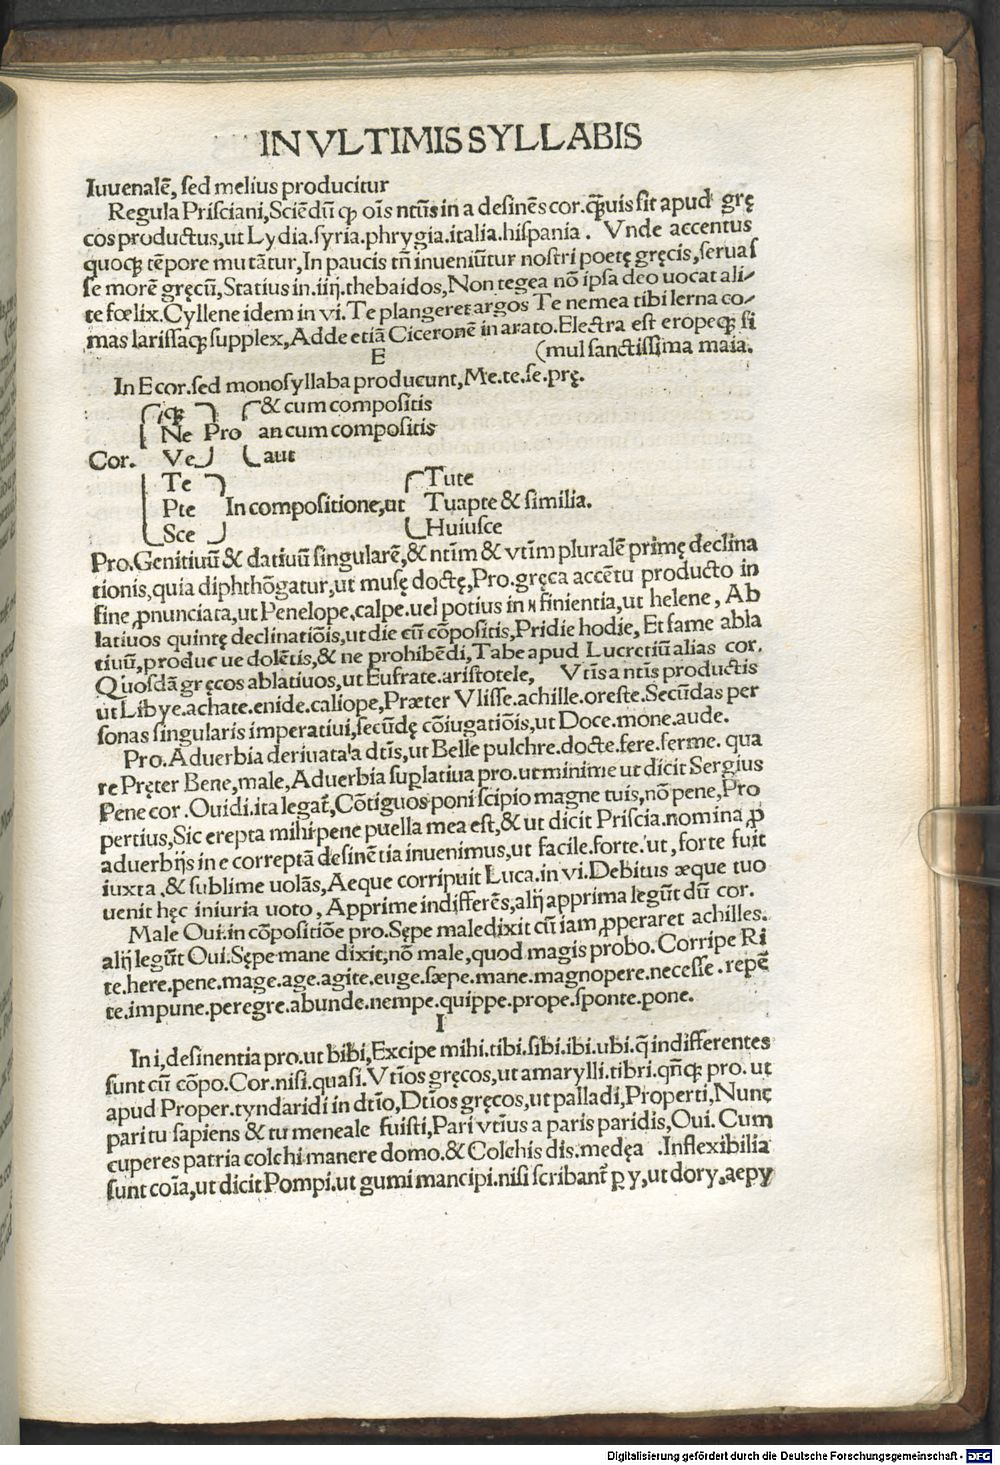 IN VLTIMIS SYLLABIS
Iuuenalē, sed melius producitur
Regula Prisciani, Sciēdū ꝙ oīs ntūs in a desinēs cor. q̄uis sit apud grę
cos productus, ut Lydia. syria. phrygia. italia. hispania. Vnde accentus
quoqꝫ tēpore mutātur, In paucis tn̄ inueniūtur nostri poetę gręcis, seruas
se morē gręcū, Statius in. iiij. thebaidos, Non tegea nō ipsa deo uocat ali-
te fœlix. Cyllene idem in vi. Te plangeret argos Te nemea tibi lerna co-
mas larissaqꝫ supplex, Adde etiā Ciceronē in arato. Electra est eropeqꝫ si
E (mul sanctissima maia.
In E cor. sed monosyllaba producunt, Me. te. se. prę.
qꝫ & cum compositis
Ne Pro an cum compositis
Cor. Ve aut
Te Tute
Pte In compositione, ut Tuapte & similia.
Sce Huiusce
Pro. Genitiuū & datiuū singularē, & ntīm & vtīm pluralē primę declina
tionis, quia diphthōgatur, ut musę doctę, Pro. gręca accētu producto in
fine ꝓnunciata, ut Penelope, calpe. uel potius in ɴ finientia, ut helene, Ab
latiuos quintę declinatiōis, ut die cū cōpositis, Pridie hodie, Et fame abla
tiuū, produc ue dolētis, & ne prohibēdi, Tabe apud Lucretiū alias cor.
Quosdā gręcos ablatiuos, ut Eufrate. aristotele, Vtīs a ntīs productis
ut Libye. achate. enide. caliope, Præter Vlisse. achille. oreste. Secūdas per
sonas singularis imperatiui, secūdę cōiugatiōis, ut Doce. mone. aude.
Pro. Aduerbia deriuata a dtīs, ut Belle pulchre. docte. fere. ferme. qua
re Pręter Bene, male, Aduerbia suꝑlatiua pro. ut minime ut dicit Sergius
Pene cor. Ouidi. ita legat̄, Cōtiguos poni scipio magne tuis, nō pene, Pro
pertius, Sic erepta mihi pene puella mea est, & ut dicit Priscia. nomina ꝓ
aduerbijs in e correptā desinētia inuenimus, ut facile. forte. ut, forte fuit
iuxta. & sublime uolās, Aeque corripuit Luca. in vi. Debitus æque tuo
uenit hęc iniuria uoto, Apprime indifferēs, alij apprima legūt dū cor.
Male Oui. in cōpositiōe pro. Sępe maledixit cū iam ꝓperaret achilles.
alij legūt Oui. Sępe mane dixit, nō male, quod magis probo. Corripe Ri
te. here. pene. mage. age. agite. euge. sæpe. mane. magnopere. necesse. repē
te. impune. peregre. abunde. nempe. quippe. prope. sponte. pone.
I
In i, desinentia pro. ut bibi, Excipe mihi. tibi. sibi. ibi. ubi. q̄ indifferentes
sunt cū cōpo. Cor. nisi. quasi. Vtīos gręcos, ut amarylli. tibri. qn̄qꝫ pro. ut
apud Proper. tyndaridi in dtīo, Dtīos gręcos, ut palladi, Properti, Nunc
pari tu sapiens & tu meneale fuisti, Pari vtīus a paris paridis, Oui. Cum
cuperes patria colchi manere domo. & Colchis dis. medęa. Inflexibilia
sunt coīa, ut dicit Pompi. ut gumi mancipi. nisi scribant̄ ꝑ y, ut dory. aepy
Digitalisierung gefördert durch die Deutsche Forschungsgemeinschaft - DFG